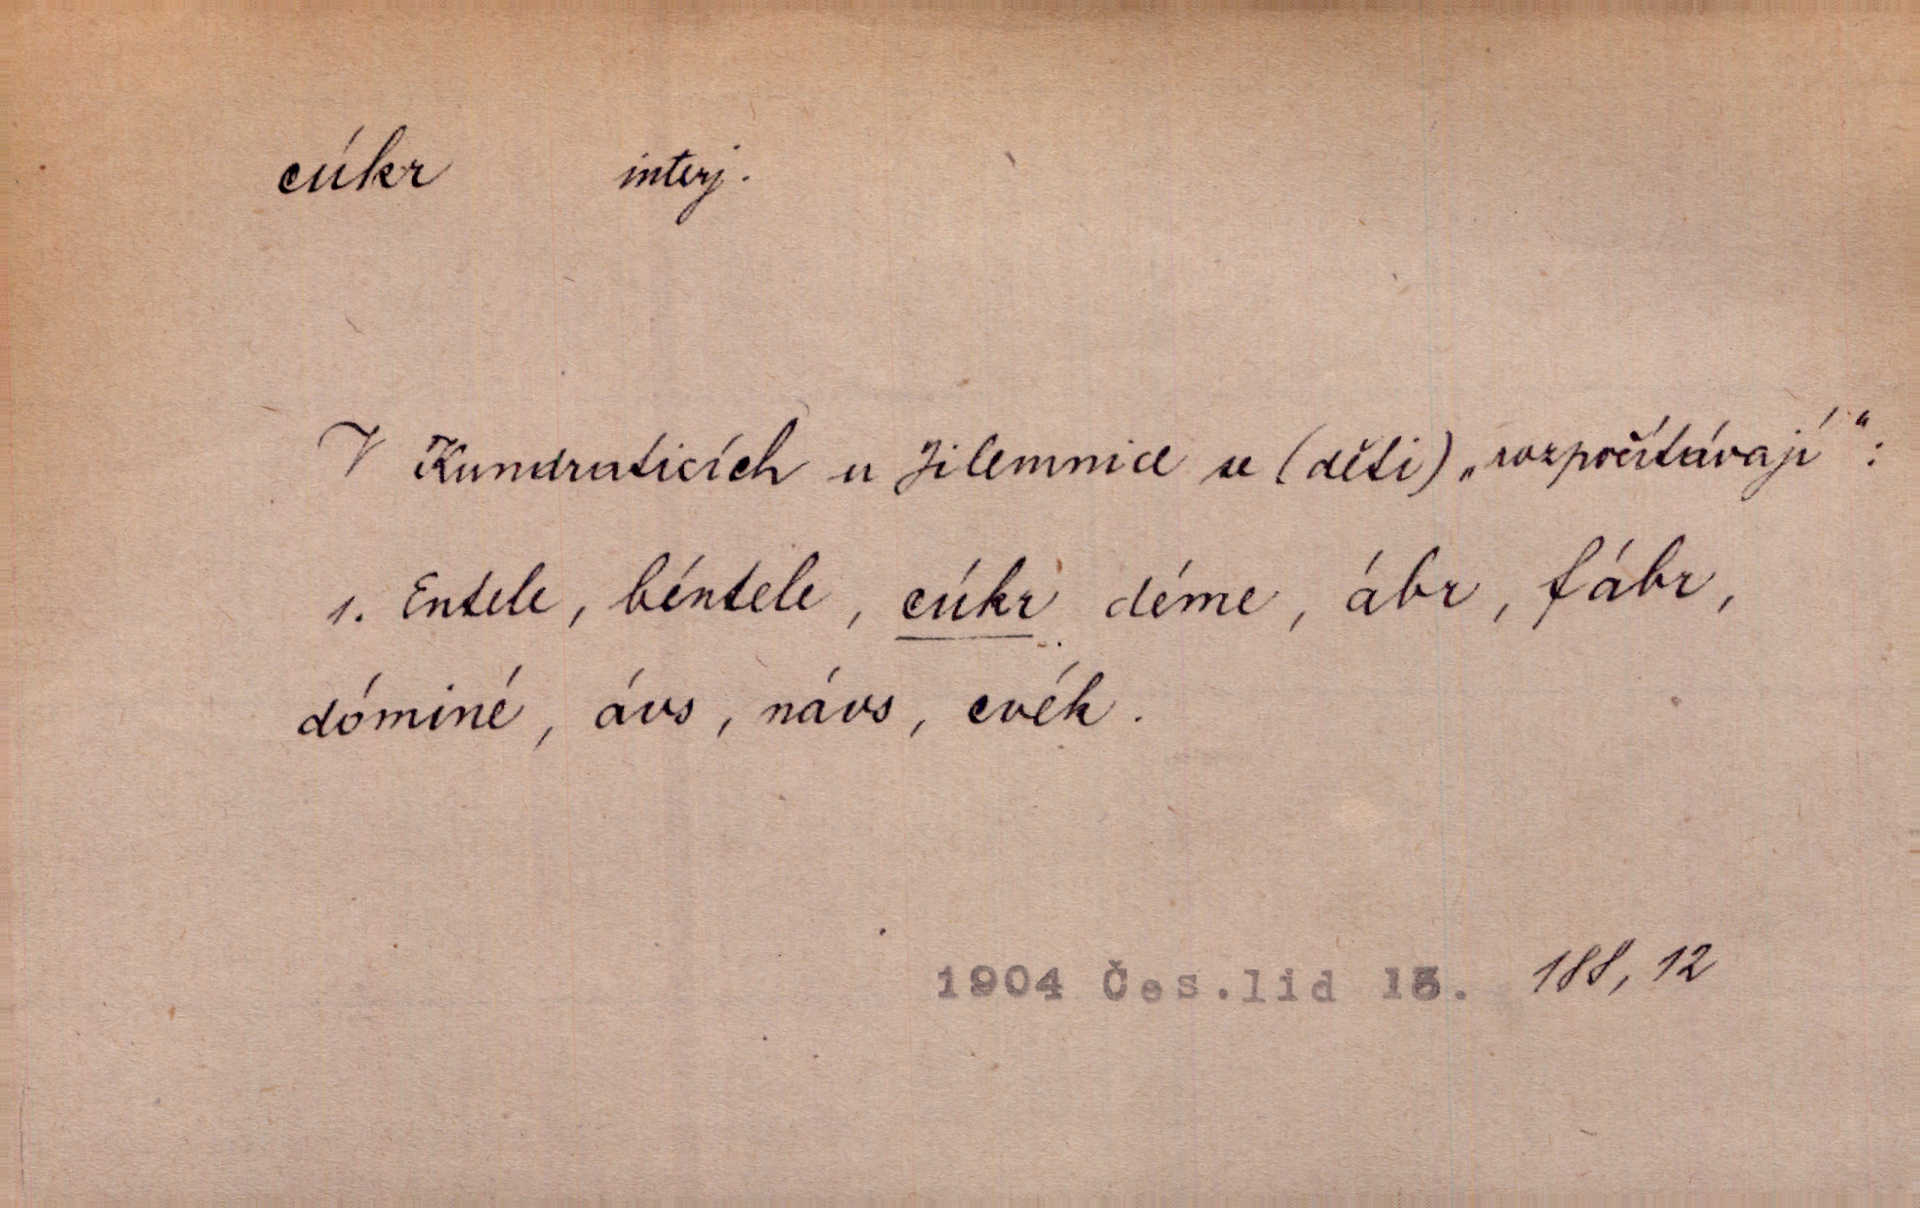 cúkr interj.
V Kundraticích u Jilemnice se (děti) „rozpočítávají“:
1. Entele, béntele, cúkr déme, ábr, fábr,
dóminé, ávs, návs, cvék.
1904 Čes.lid 13. 188, 12